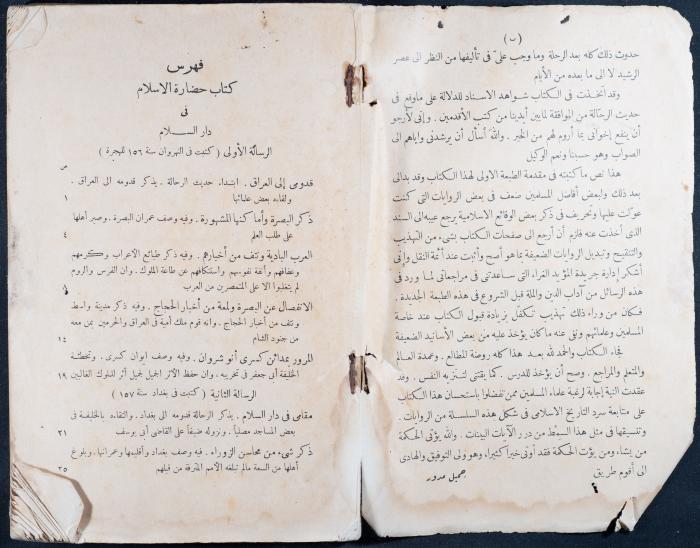 (ب)
حدوث ذلك كله بعد الرحلة وما وجب علىّ فى تأليفها من النظر الى عصر
الرشيد لا الى ما بعده من الأيام
وقد اتخذت فى الكتاب شواهد الاسناد للدلالة على ما وقع فى
حديث الرحالة من الموافقة لما بين أيدينا من كتب الأقدمين . وإنى لأرجو
أن ينفع إخوانى بما أروم لهم من الخير . والله أسأل أن يرشدنى واياهم الى
الصواب وهو حسبنا ونعم الوكيل
هذا نص ما كتبته فى مقدمة الطبعة الاولى لهذا الكتاب وقد بدا لى
بعد ذلك ولبعض أفاضل المسلمين ضعف فى بعض الروايات التى كنت
عولت عليها وتحريف فى ذكر بعض الوقائع الاسلامية يرجع عيبه الى السند
الذى أخذت عنه فلزم أن أرجع الى صفحات الكتاب بشىء من التهذيب
والتنقيح وتبديل الروايات الضعيفة بما هو أصح وأثبت عند أئمة النقل وانى
أشكر إدارة جريدة المؤيد الغراء التى ساعدتنى فى مراجعاتى لما ورد فى
هذه الرسائل من آداب الدين والملة قبل الشروع فى هذه الطبعة الجديدة .
فكان من وراء ذلك تهذيب تكفل بزيادة قبول الكتاب عند خاصة
المسلمين وعلمائهم ونفى عنه ما كان يؤخذ عليه من بعض الأسانيد الضعيفة
فجاء الكتاب والحمد لله بعد هذا كله روضة المطالع . وعمدة العالم
والمتعلم والمراجع . وصح أن يؤخذ للدرس . كما يقتنى لتنزيه النفس . وقد
عقدت النية إجابة لرغبة علماء المسلمين ممن تفضلوا باستحسان هذا الكتاب
على متابعة سرد التاريخ الاسلامى فى شكل هذه السلسلة من الروايات .
وتنسيقها فى مثل هذا السمط من درر الآيات البينات . والله يؤتى الحكمة
من يشاء ومن يؤت الحكمة فقد أوتى خيرا كثيرا وهو ولى التوفيق والهادى
الى أقوم طريق
جميل مدور
فهرس
كتاب حضارة الاسلام
فى
دار السلام
الرسالة الأولى ( كتبت فى النهروان سنة ١٥٦ للهجرة )
ص
قدومى إلى العراق . ابتداء حديث الرحالة . يذكر قدومه الى العراق .
ولقاءه بعض علمائها ١
ذكر البصرة وأماكنها المشهورة . وفيه وصف عمران البصرة . وصبر أهلها
على طلب العلم ٤
العرب البادية ونتف من أخبارهم . وفيه ذكر طبائع الاعراب وكرمهم
وعفافهم وأنفة نفوسهم واستنكافهم عن طاعة الملوك . وان الفرس والروم
لم يتغلبوا الا على المتحضرين من العرب ٨
الانفصال عن البصرة ولمعة من أخبار الحجاج . وفيه ذكر مدينة واسط
ونتف من أخبار الحجاج . وانه قوم ملك أمية فى العراق والحرمين بمن معه
من جنود الشام ١٤
المرور بمدائن كسرى أنو شروان . وفيه وصف ايوان كسرى . وتخطئة
الخليفة أبى جعفر فى تخريبه . وان حفظ الاثر الجميل يجمل أثر للملوك الغالبين ١٩
الرسالة الثانية ( كتبت فى بغداد سنة ١٥٧ )
مقامى فى دار السلام . يذكر الرحالة قدومه الى بغداد . والتقاءه بالخليفة فى
بعض المساجد مصلياً . ونزوله ضيفاً على القاضى أبى يوسف ٢١
ذكر شىء من محاسن الزوراء . فيه وصف بغداد وأقليمها وعمرانها . وبلوغ
أهلها من السعة مالم تبلغه الامم المترفة من قبلهم ٢٥